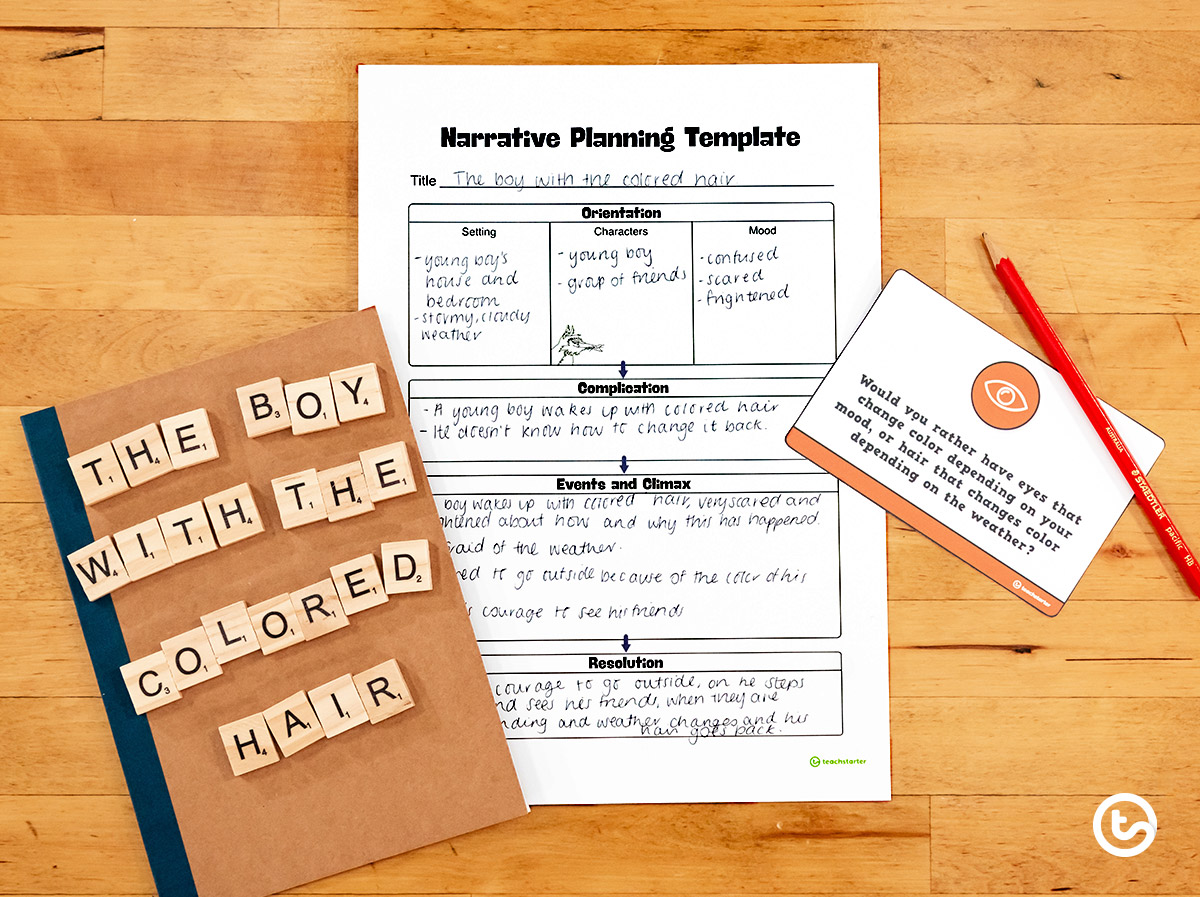 Narrative Planning Template
Title The boy with the colored hair
Orientation
Setting
- young boy's
house and
bedroom
- stormy, cloudy
weather
Characters
- young boy
- group of friends
Mood
- confused
- scared
- frightened
Complication
- A young boy wakes up with colored hair
- He doesn't know how to change it back.
Events and Climax
boy wakes up with colored hair, very scared and
about how and why this has happened.
of the weather.
to go outside because of the color of his
courage to see his friends
Resolution
courage to go outside, on he steps
sees his friends, when they are
and weather changes and his
hair goes back.
teachstarter
THE BOY
WITH THE
COLORED
HAIR
Would you rather have eyes that
change color depending on your
mood, or hair that changes color
depending on the weather?
teachstarter
AUSTRALIA STAEDTLER pacific HB
ts